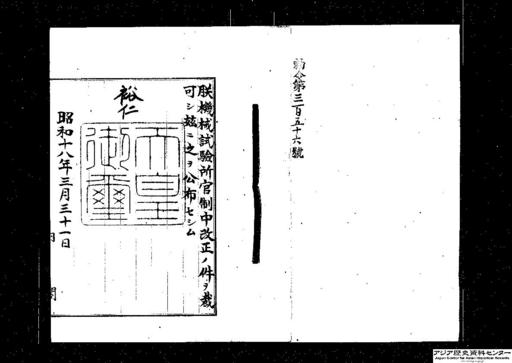 勅令第三百五十六號
朕機械試驗所官制中改正ノ件ヲ裁
可シ茲ニ之ヲ公布セシム
裕仁
天皇
御璽
昭和十八年三月三十一日
アジア歴史資料センター
Japan Center for Asian Historical Records